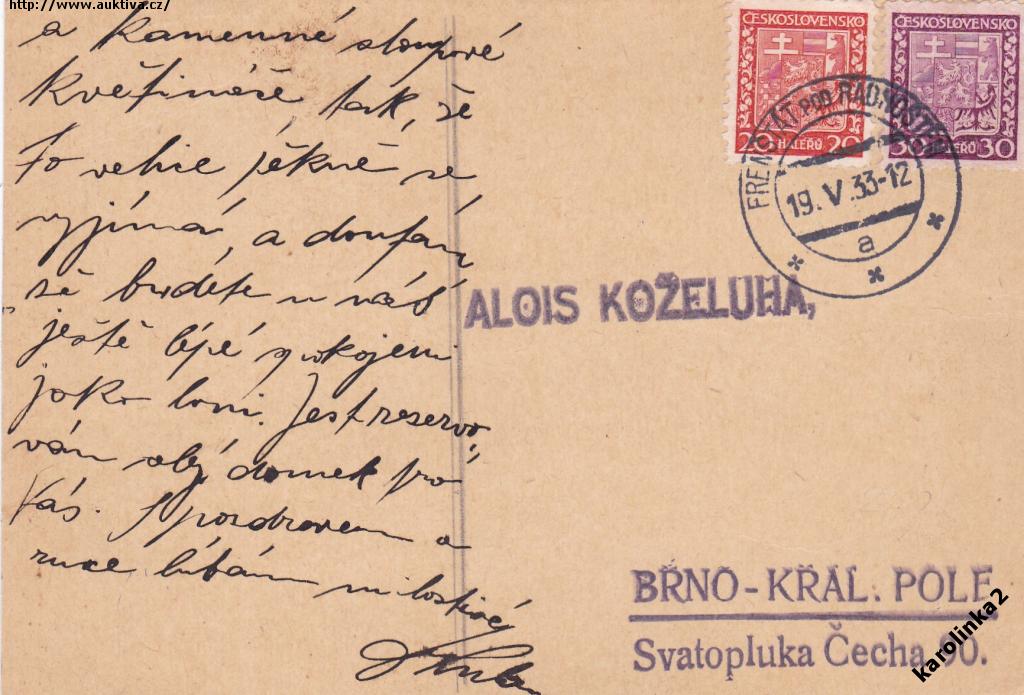 http://www.auktiva.cz/
a kamenné sloupové
květináče, tak, že
to velice pěkně se
vyjímá, a doufám
že budete u nás
ještě lépe spokojeni
jako loni. Jest reservo-
ván celý domek pro
Vás. S pozdravem a
ruce líbám milostivé
ČESKOSLOVENSKO
20 HALÉŘŮ 20
ČESKOSLOVENSKO
30 HALÉŘŮ 30
FRENŠTÁT POD RADHOŠTĚM
19.V.33-12
a
ALOIS KOŽELUHA,
BRNO-KRÁL. POLE
Svatopluka Čecha 90.
karolinka2